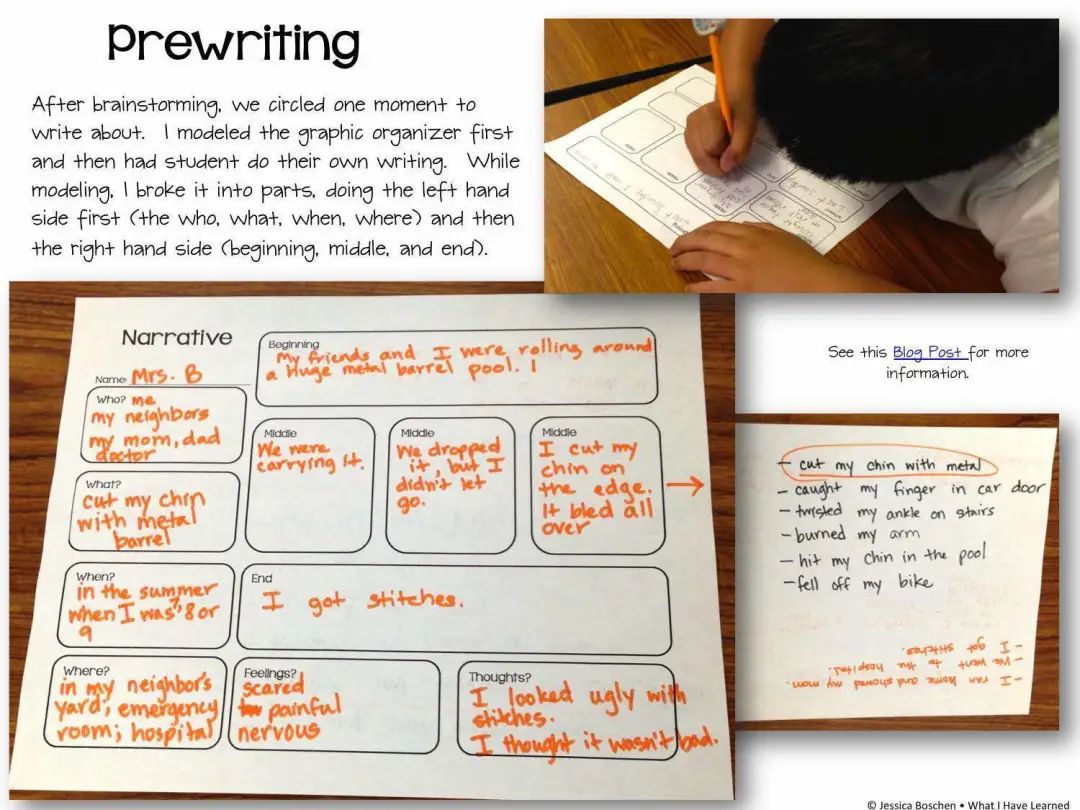 Prewriting
After brainstorming, we circled one moment to
write about. I modeled the graphic organizer first
and then had student do their own writing. While
modeling, I broke it into parts, doing the left hand
side first (the who, what, when, where) and then
the right hand side (beginning, middle, and end).
Narrative
Name: Mrs. B
Who? me
my neighbors
my mom, dad
doctor
What?
cut my chin
with metal
barrel
When?
in the summer
when I was 8 or
9
Where?
in my neighbor's
yard; emergency
room; hospital
Beginning
My friends and I were rolling around
a Huge metal barrel pool.
Middle
We were
carrying it.
Middle
We dropped
it, but I
didn't let
go.
Middle
I cut my
chin on
the edge.
It bled all
over
End
I got stitches.
Feelings?
scared
painful
nervous
Thoughts?
I looked ugly with
stitches.
I thought it wasn't bad.
See this Blog Post for more
information.
- cut my chin with metal
- caught my finger in car door
- twisted my ankle on stairs
- burned my arm
- hit my chin in the pool
- fell off my bike
- I ran home and showed my mom
- We went to the hospital.
- I got stitches.
© Jessica Boschen • What I Have Learned